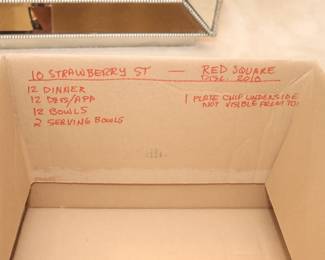 10 STRAWBERRY ST — RED SQUARE
DISC. 2010
12 DINNER
12 DES/APP
12 BOWLS
2 SERVING BOWLS
1 PLATE CHIP UNDERSIDE
NOT VISIBLE FROM TOP